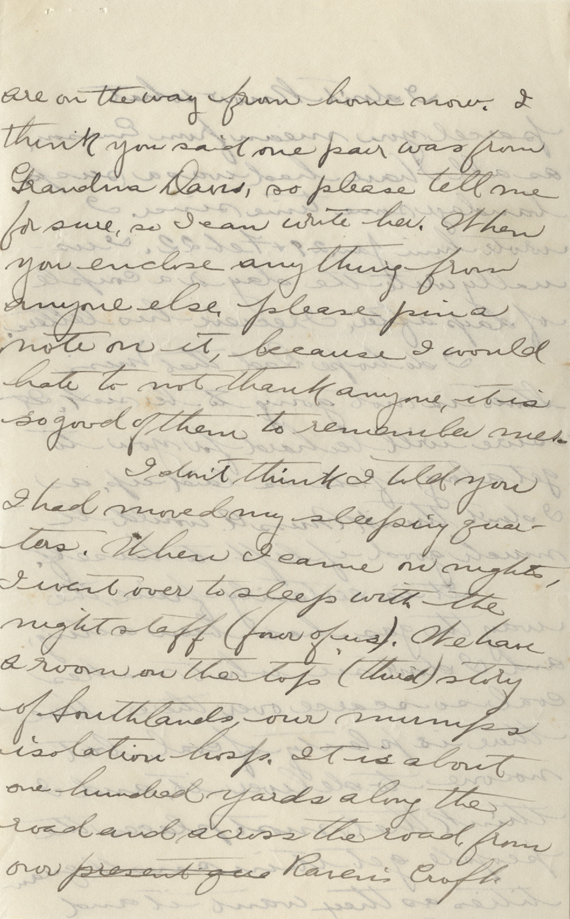 are on the way from home now. I
think you said one pair was from
Grandma Davis, so please tell me
for sure, so I can write her. When
you enclose anything from
anyone else, please pin a
note on it, because I would
hate to not thank anyone, it is
so good of them to remember me.
I don't think I told you
I had moved my sleeping quar-
ters. When I came on nights,
I went over to sleep with the
night staff (four of us). We have
a room on the top (third) story
of Southlands, our mumps
isolation hosp. It is about
one hundred yards along the
road and across the road from
our present qua Ravens Croft